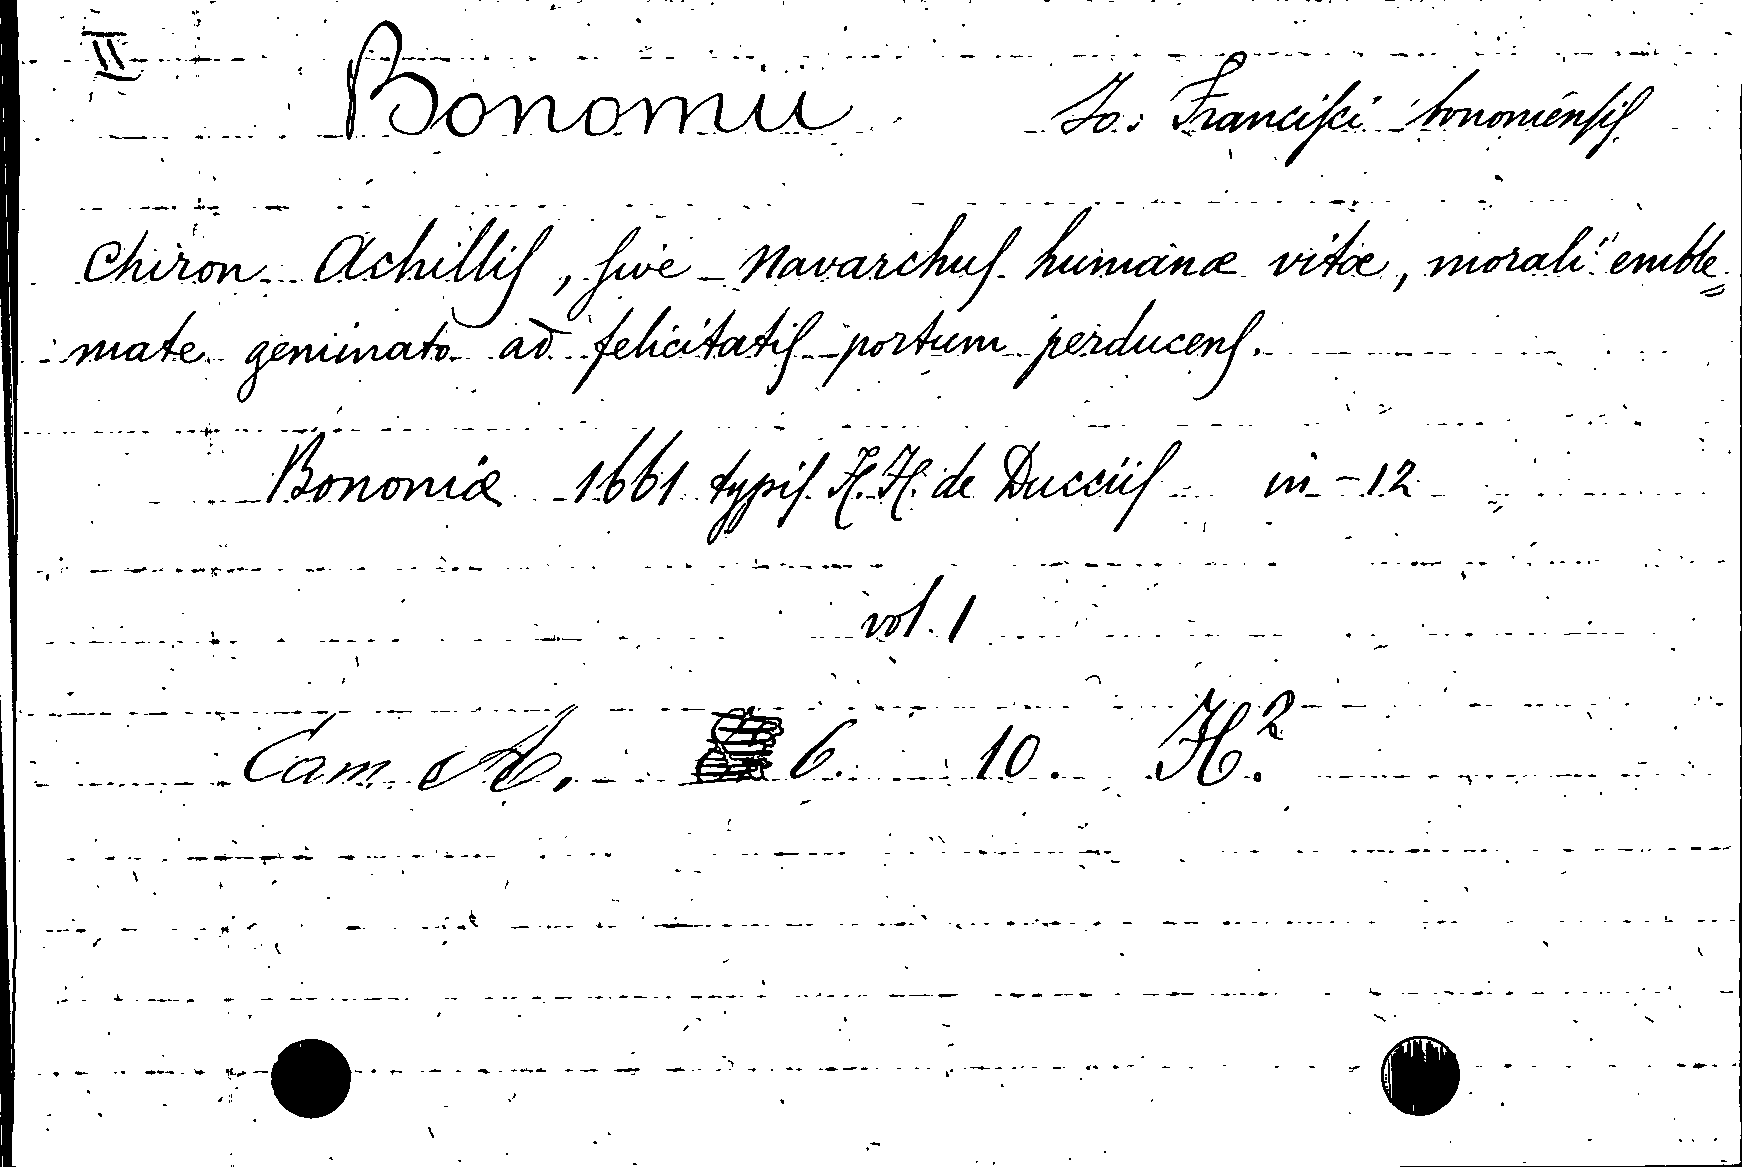 II
Bonomii Jo: Franciſci bononienſiſ
Chiron Achilliſ, ſive Navarchuſ humanæ vitæ, morali emble=
mate geminato ad felicitatiſ portum perducenſ.
Bononiæ 1661 typiſ H. H. de Ducciiſ in-12
vol. 1
Cam A. 6. 10. H.²